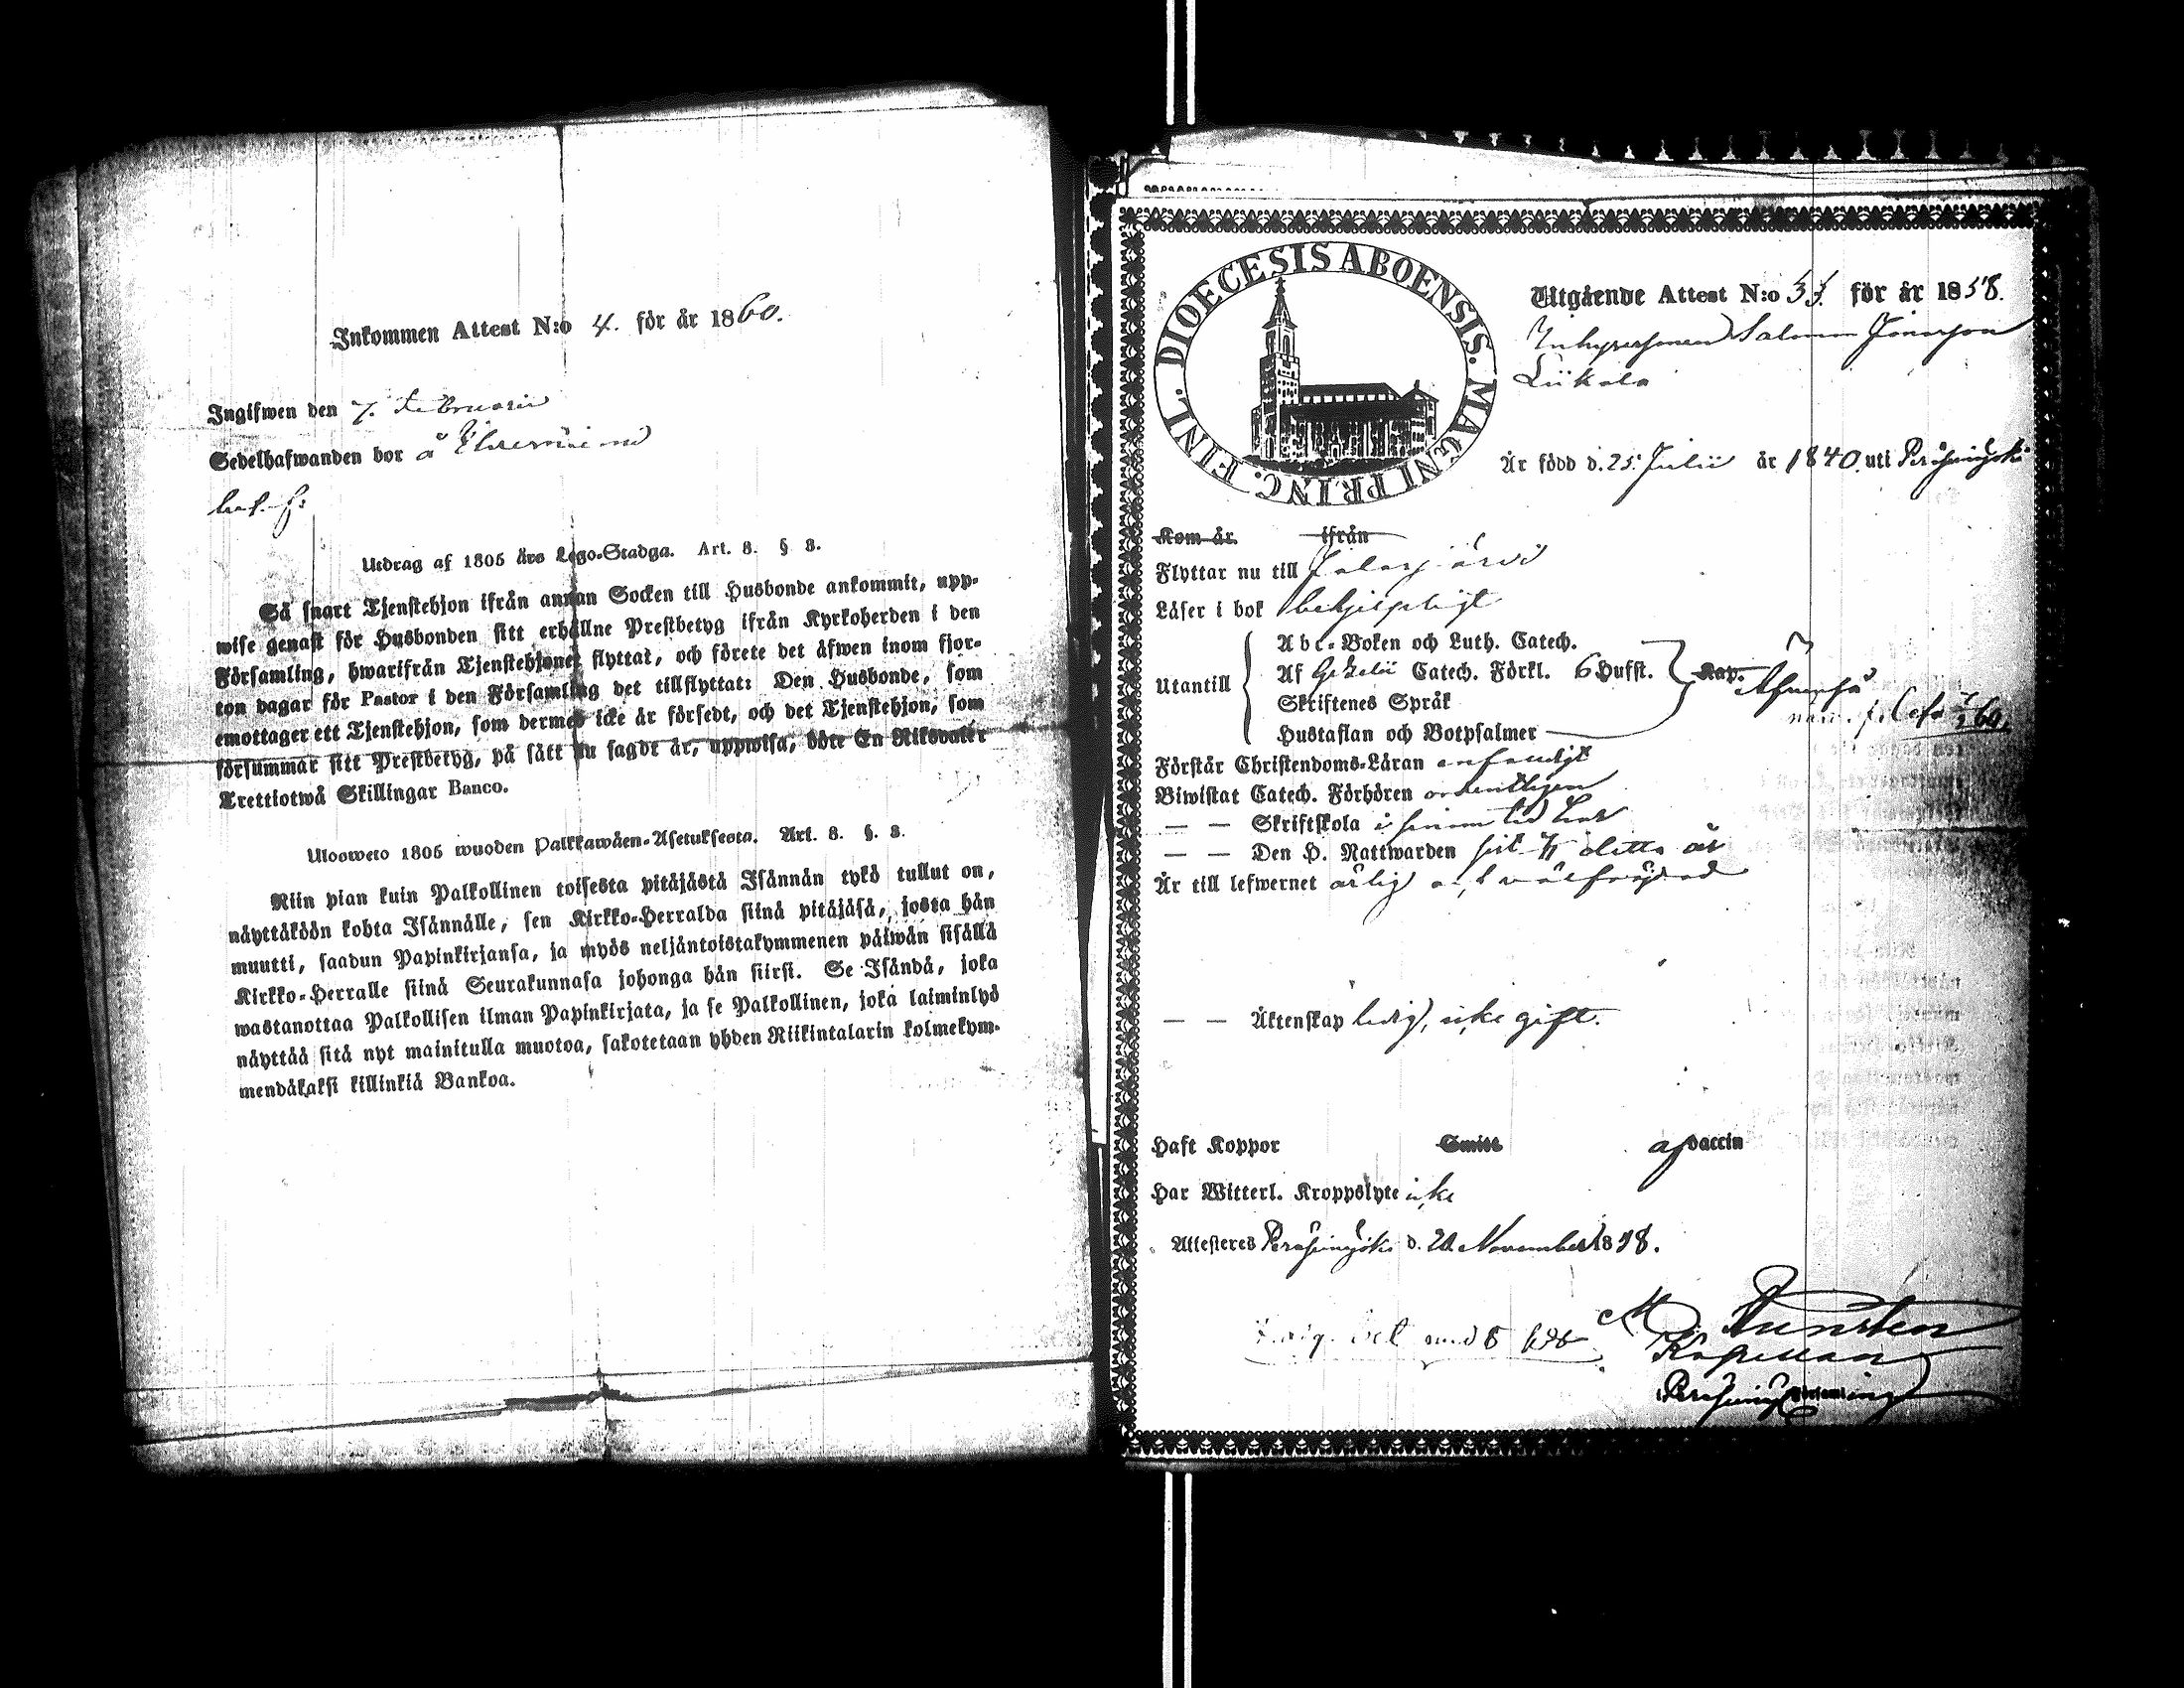 Inkommen Attest N:o 4. för år 1860.
Ingifwen den 7. Februarii
Sedelhafwanden bor å
Utdrag af 1805 års Lego-Stadga. Art. 8. § 8.
Så snart Tjenstehjon ifrån annan Socken till Husbonde ankommit, upp-
wise genast för Husbonden sitt erhållne Prestbetyg ifrån Kyrkoherden i den
Församling, hwarifrån Tjenstehjonet flyttat, och förete det äfwen inom fjor-
ton dagar för Pastor i den Församling det tillflyttat: Den Husbonde, som
emottager ett Tjenstehjon, som dermed icke är försedt, och det Tjenstehjon, som
försummar sitt Prestbetyg, på sätt nu sagdt är, uppwisa, böte En Riksdaler
Trettiotwå Skillingar Banco.
Uloswето 1805 wuoden Palkkawäen-Asetuksesta. Art. 8. §. 8.
Niin pian kuin Palkollinen toisesta pitäjästä Isännän tykö tullut on,
näyttäköön kohta Isännälle, sen Kirkko-Herralda siinä pitäjäsä, josta hän
muutti, saadun Papinkirjansa, ja myös neljäntoistakymmenen päiwän sisällä
Kirkko-Herralle siinä Seurakunnasa johonga hän siirsi. Se Isändä, joka
wastanottaa Palkollisen ilman Papinkirjata, ja se Palkollinen, joka laiminlyö
näyttää sitä nyt mainitulla muotoa, sakotetaan yhden Riikintalarin kolmekym-
mendäkaksi killinkiä Bankoa.
DIOECESIS ABOENSIS. MAGNI PRINC. FINL.
Utgående Attest N:o 33. för år 1858.
Inhysesonen Salomon Jonasson
Liikala
Är född d. 25. Julii år 1840. uti Peräseinäjoki
Kom år. ifrån
Flyttar nu till Jalasjärvi
Läser i bok behjelpligt
Utantill
Abc-Boken och Luth. Catech.
Af Gezelii Catech. Förkl. 6 Hufst. Kap.
Skriftenes Språk
Hustaflan och Botpsalmer
Förstår Christendoms-Läran enfaldigt
Biwistat Catech. Förhören ordentligen
— — Skriftskola i sinom tid
— — Den H. Nattwarden sist detta år
Är till lefwernet ärlig och välfräjdad
— — Äktenskap ledig, icke gift.
Haft Koppor Smitt af vaccin
Har Witterl. Kroppslyte icke
Attesteras Peräseinäjoki d. 20 November 1858.
Kapellan